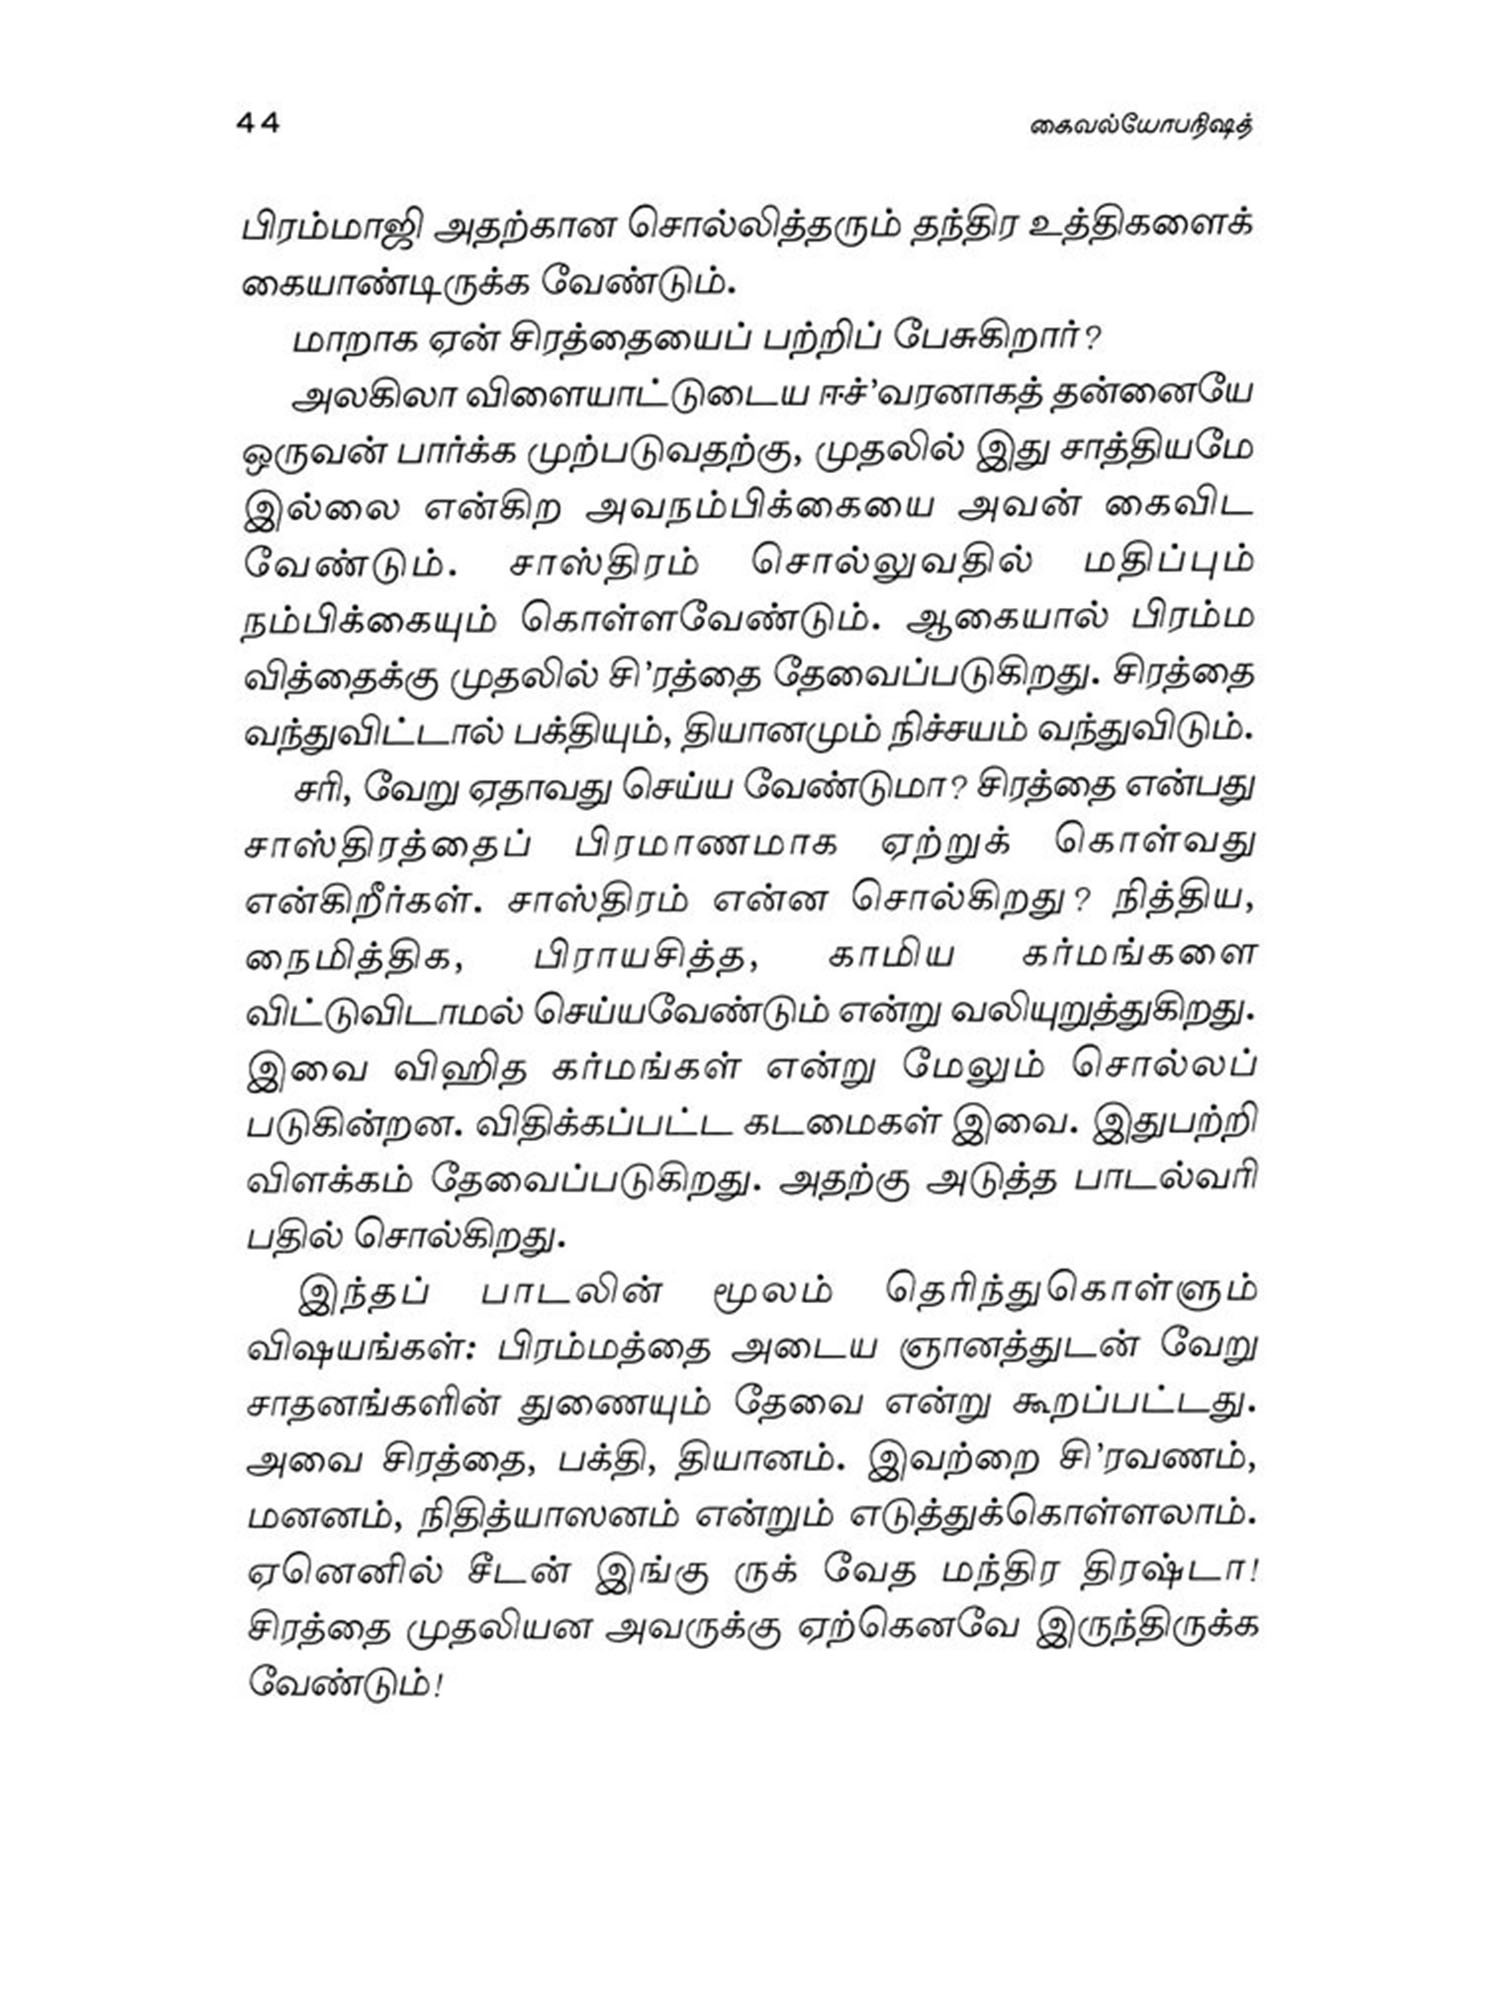 44
கைவல்யோபநிஷத்
பிரம்மாஜி அதற்கான சொல்லித்தரும் தந்திர உத்திகளைக்
கையாண்டிருக்க வேண்டும்.
மாறாக ஏன் சிரத்தையைப் பற்றிப் பேசுகிறார்?
அலகிலா விளையாட்டுடைய ஈச்'வரனாகத் தன்னையே
ஒருவன் பார்க்க முற்படுவதற்கு, முதலில் இது சாத்தியமே
இல்லை என்கிற அவநம்பிக்கையை அவன் கைவிட
வேண்டும். சாஸ்திரம் சொல்லுவதில் மதிப்பும்
நம்பிக்கையும் கொள்ளவேண்டும். ஆகையால் பிரம்ம
வித்தைக்கு முதலில் சி'ரத்தை தேவைப்படுகிறது. சிரத்தை
வந்துவிட்டால் பக்தியும், தியானமும் நிச்சயம் வந்துவிடும்.
சரி, வேறு ஏதாவது செய்ய வேண்டுமா? சிரத்தை என்பது
சாஸ்திரத்தைப் பிரமாணமாக ஏற்றுக் கொள்வது
என்கிறீர்கள். சாஸ்திரம் என்ன சொல்கிறது? நித்திய,
நைமித்திக, பிராயசித்த, காமிய கர்மங்களை
விட்டுவிடாமல் செய்யவேண்டும் என்று வலியுறுத்துகிறது.
இவை விஹித கர்மங்கள் என்று மேலும் சொல்லப்
படுகின்றன. விதிக்கப்பட்ட கடமைகள் இவை. இதுபற்றி
விளக்கம் தேவைப்படுகிறது. அதற்கு அடுத்த பாடல்வரி
பதில் சொல்கிறது.
இந்தப் பாடலின் மூலம் தெரிந்துகொள்ளும்
விஷயங்கள்: பிரம்மத்தை அடைய ஞானத்துடன் வேறு
சாதனங்களின் துணையும் தேவை என்று கூறப்பட்டது.
அவை சிரத்தை, பக்தி, தியானம். இவற்றை சி'ரவணம்,
மனனம், நிதித்யாஸனம் என்றும் எடுத்துக்கொள்ளலாம்.
ஏனெனில் சீடன் இங்கு ருக் வேத மந்திர திரஷ்டா!
சிரத்தை முதலியன அவருக்கு ஏற்கெனவே இருந்திருக்க
வேண்டும்!